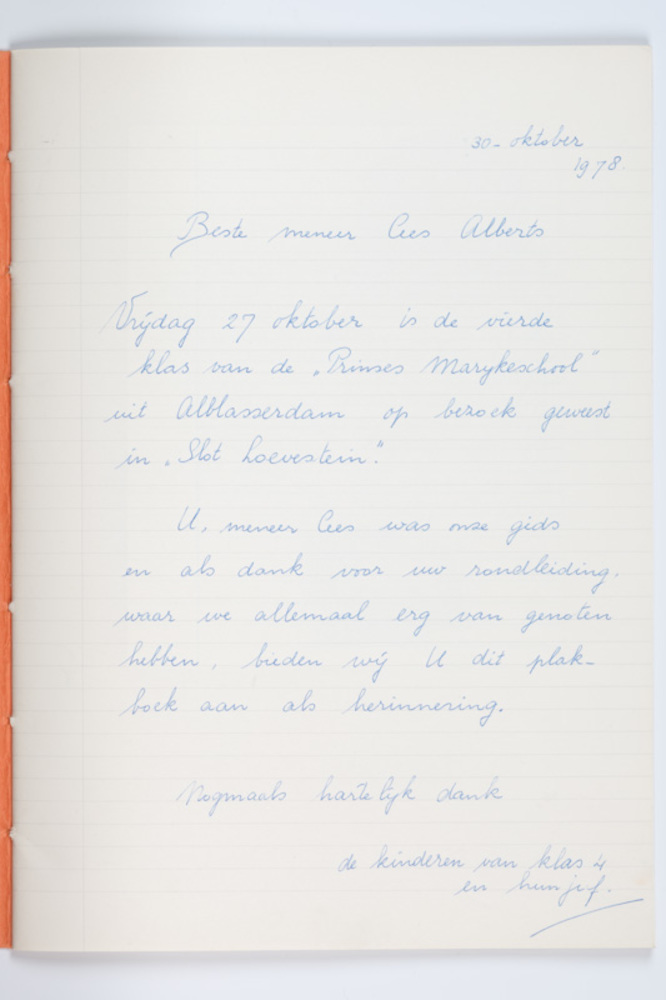 30- oktober
1978.
Beste meneer Cees Alberts
Vrijdag 27 oktober is de vierde
klas van de „Prinses Marykeschool"
uit Alblasserdam op bezoek geweest
in „Slot Loevestein."
U, meneer Cees was onze gids
en als dank voor uw rondleiding,
waar we allemaal erg van genoten
hebben, bieden wij U dit plak-
boek aan als herinnering.
Nogmaals hartelijk dank
de kinderen van klas 4
en hun juf.